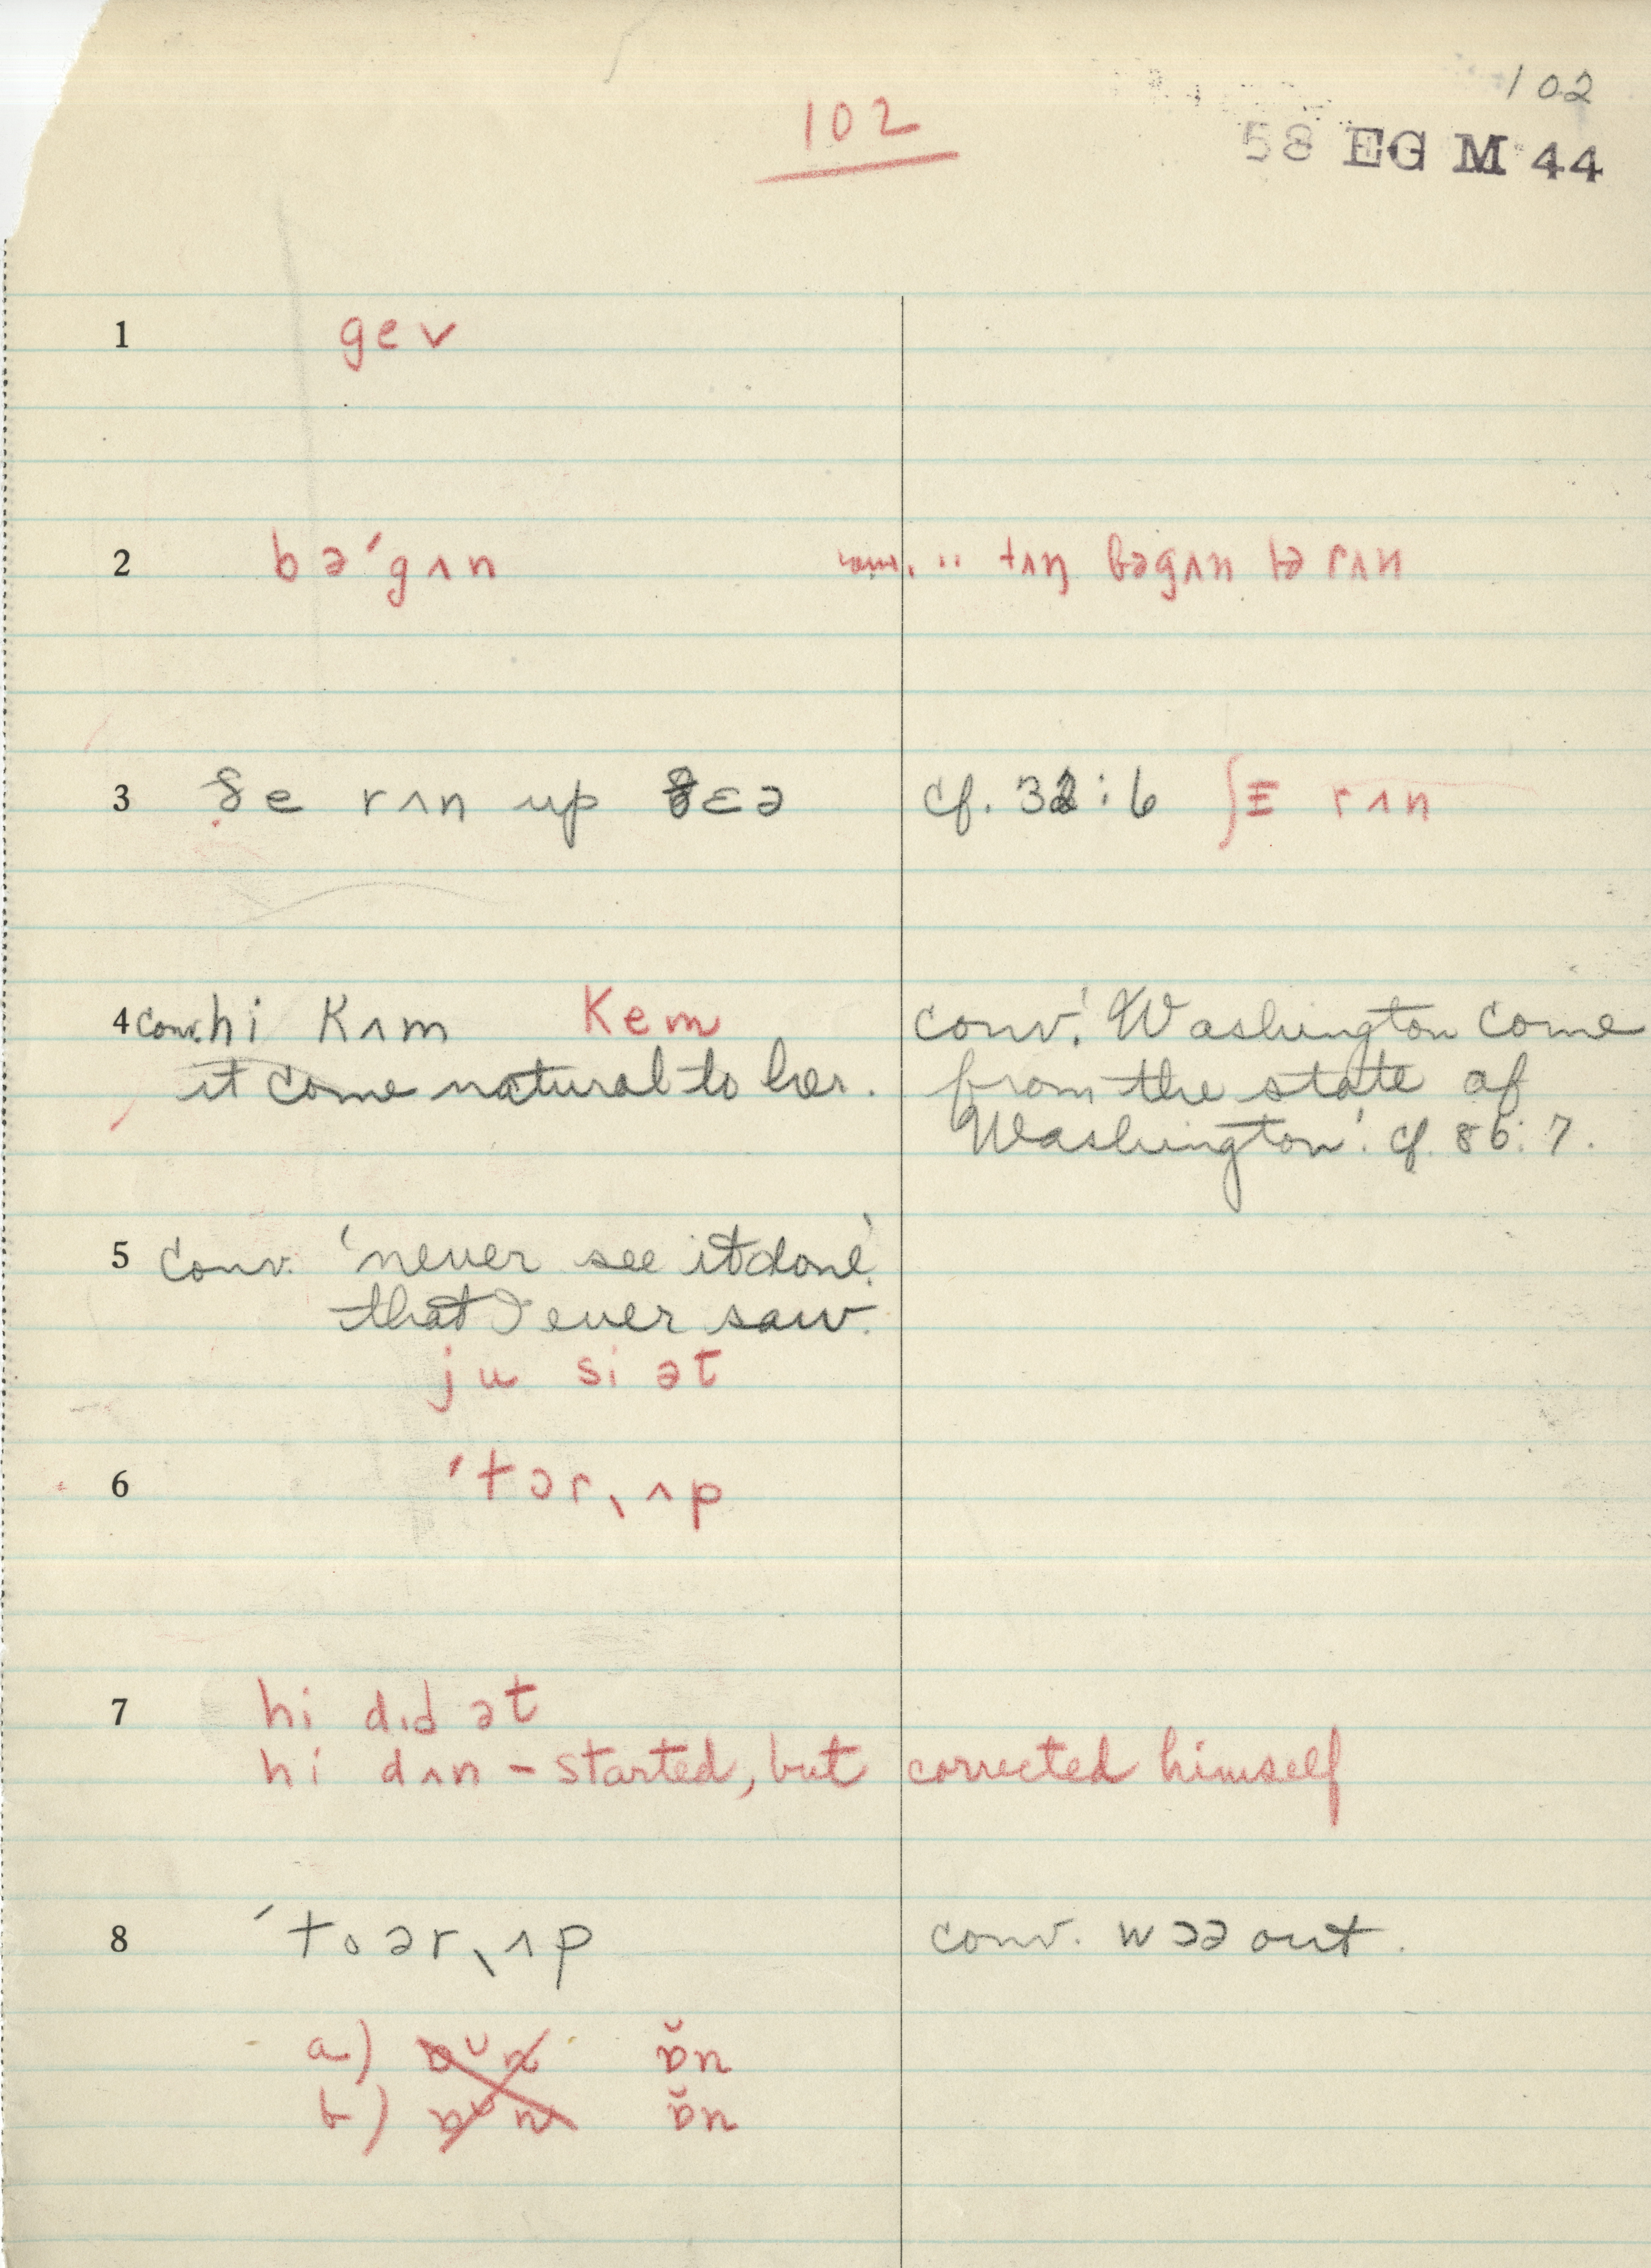 102
102
58 EG M 44
1 gev
2 bə'gʌn conv. .. tʌŋ bəgʌn tə rʌn
3 ðe rʌn up ðɛə cf. 32:6 ʃI rʌn
4 conv. hi Kʌm Kem conv. 'Washington come
it come natural to her. from the state of
Washington'. cf. 86:7.
5 conv. 'never see it done'.
that I ever saw.
ju si ət
6 'tɔrˎʌp
7 hi dɪd ət
hi dʌn – started, but corrected himself
8 'toərˎʌp conv. wɔə out.
a) ɒ̆n
b) ɒ̆n